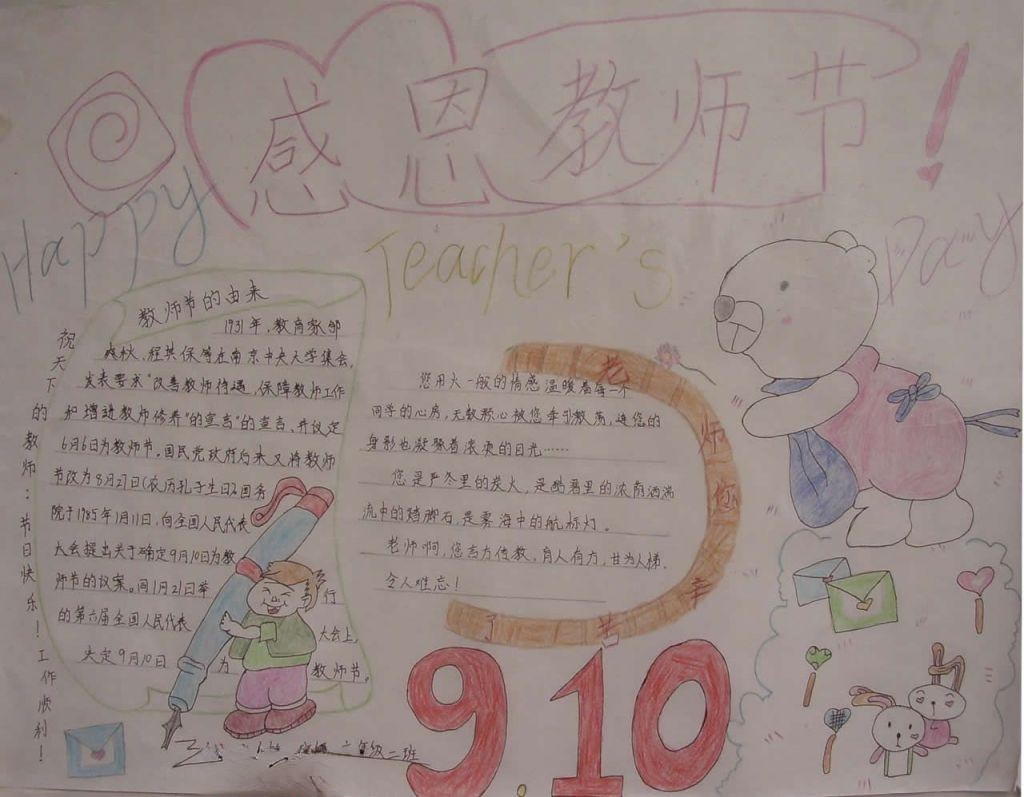 感恩教师节！
Happy Teacher's Day
教师节的由来
1931年，教育家邰
爽秋、程其保等在南京中央大学集会，
发表要求“改善教师待遇，保障教师工作
和增进教师修养”的宣言”的宣言，并议定
6月6日为教师节。国民党政府后来又将教师
节改为8月27日(农历孔子生日)。国务
院于1985年1月11日，向全国人民代表
大会提出关于确定9月10日为教
师节的议案。同1月21日举行
的第六届全国人民代表大会上，
决定9月10日为教师节。
祝天下的教师：节日快乐！工作顺利！
您用火一般的情感温暖着每一个
同学的心房，无数颗心被您牵引激荡，连您的
身影也凝聚着浓浓的目光……
您是严冬里的炭火，是酷暑里的浓荫洒湍
流中的踏脚石，是雾海中的航标灯。
老师啊，您言方传教，育人有方，甘为人梯，
令人难忘！
老师您辛苦了
9.10
六年级一班